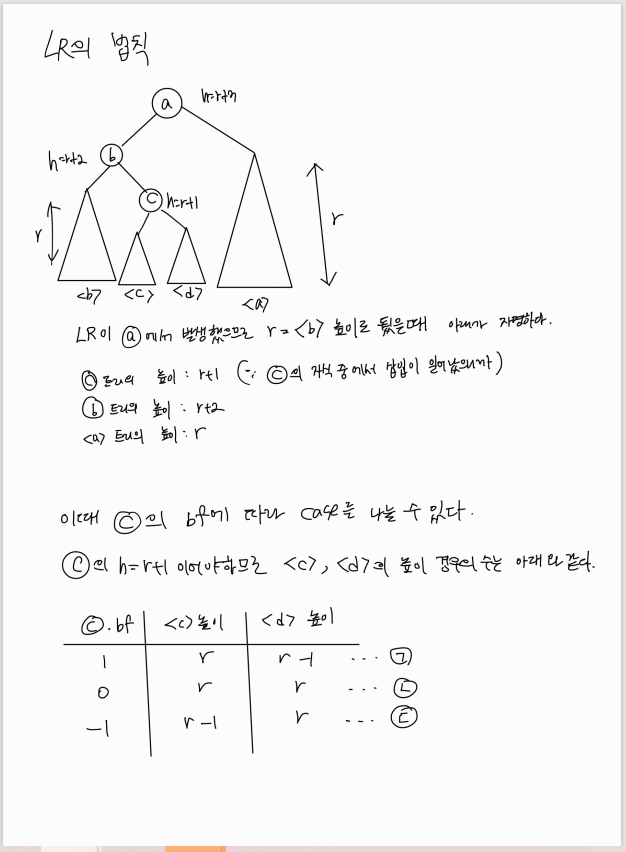 LR의 법칙
a h=r+3
h=r+2 b
c h=r+1
r
r
<b> <c> <d> <a>
LR이 ⓐ에서 발생했으므로 r = <b> 높이로 뒀을때 아래가 자명하다.
ⓒ 트리의 높이 : r+1 (∵ ⓒ의 자식 중에서 삽입이 일어났으니까)
ⓑ 트리의 높이 : r+2
<a> 트리의 높이 : r
이때 ⓒ의 bf에 따라 case를 나눌 수 있다.
ⓒ의 h=r+1 이어야하므로 <c>, <d>의 높이 경우의 수는 아래와 같다.
ⓒ.bf <c>높이 <d> 높이
1 r r-1 ... ㉠
0 r r ... ㉡
-1 r-1 r ... ㉢